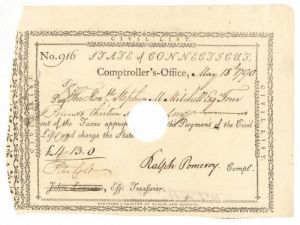 CIVIL LIST.
No. 916 STATE of CONNECTICUT.
Comptroller's-Office, May 18th 1790
Sir,
Pay The Honble Stephen M Mitchell Esq Four
Pounds thirteen
out of the Taxes approp the Payment of the Civil
List, and charge the State
£4.13.0
Ralph Pomeroy Compt.
Peter Colt
John Lawrence, Esq; Treasurer.
CIVIL LIST.
CIVIL LIST.